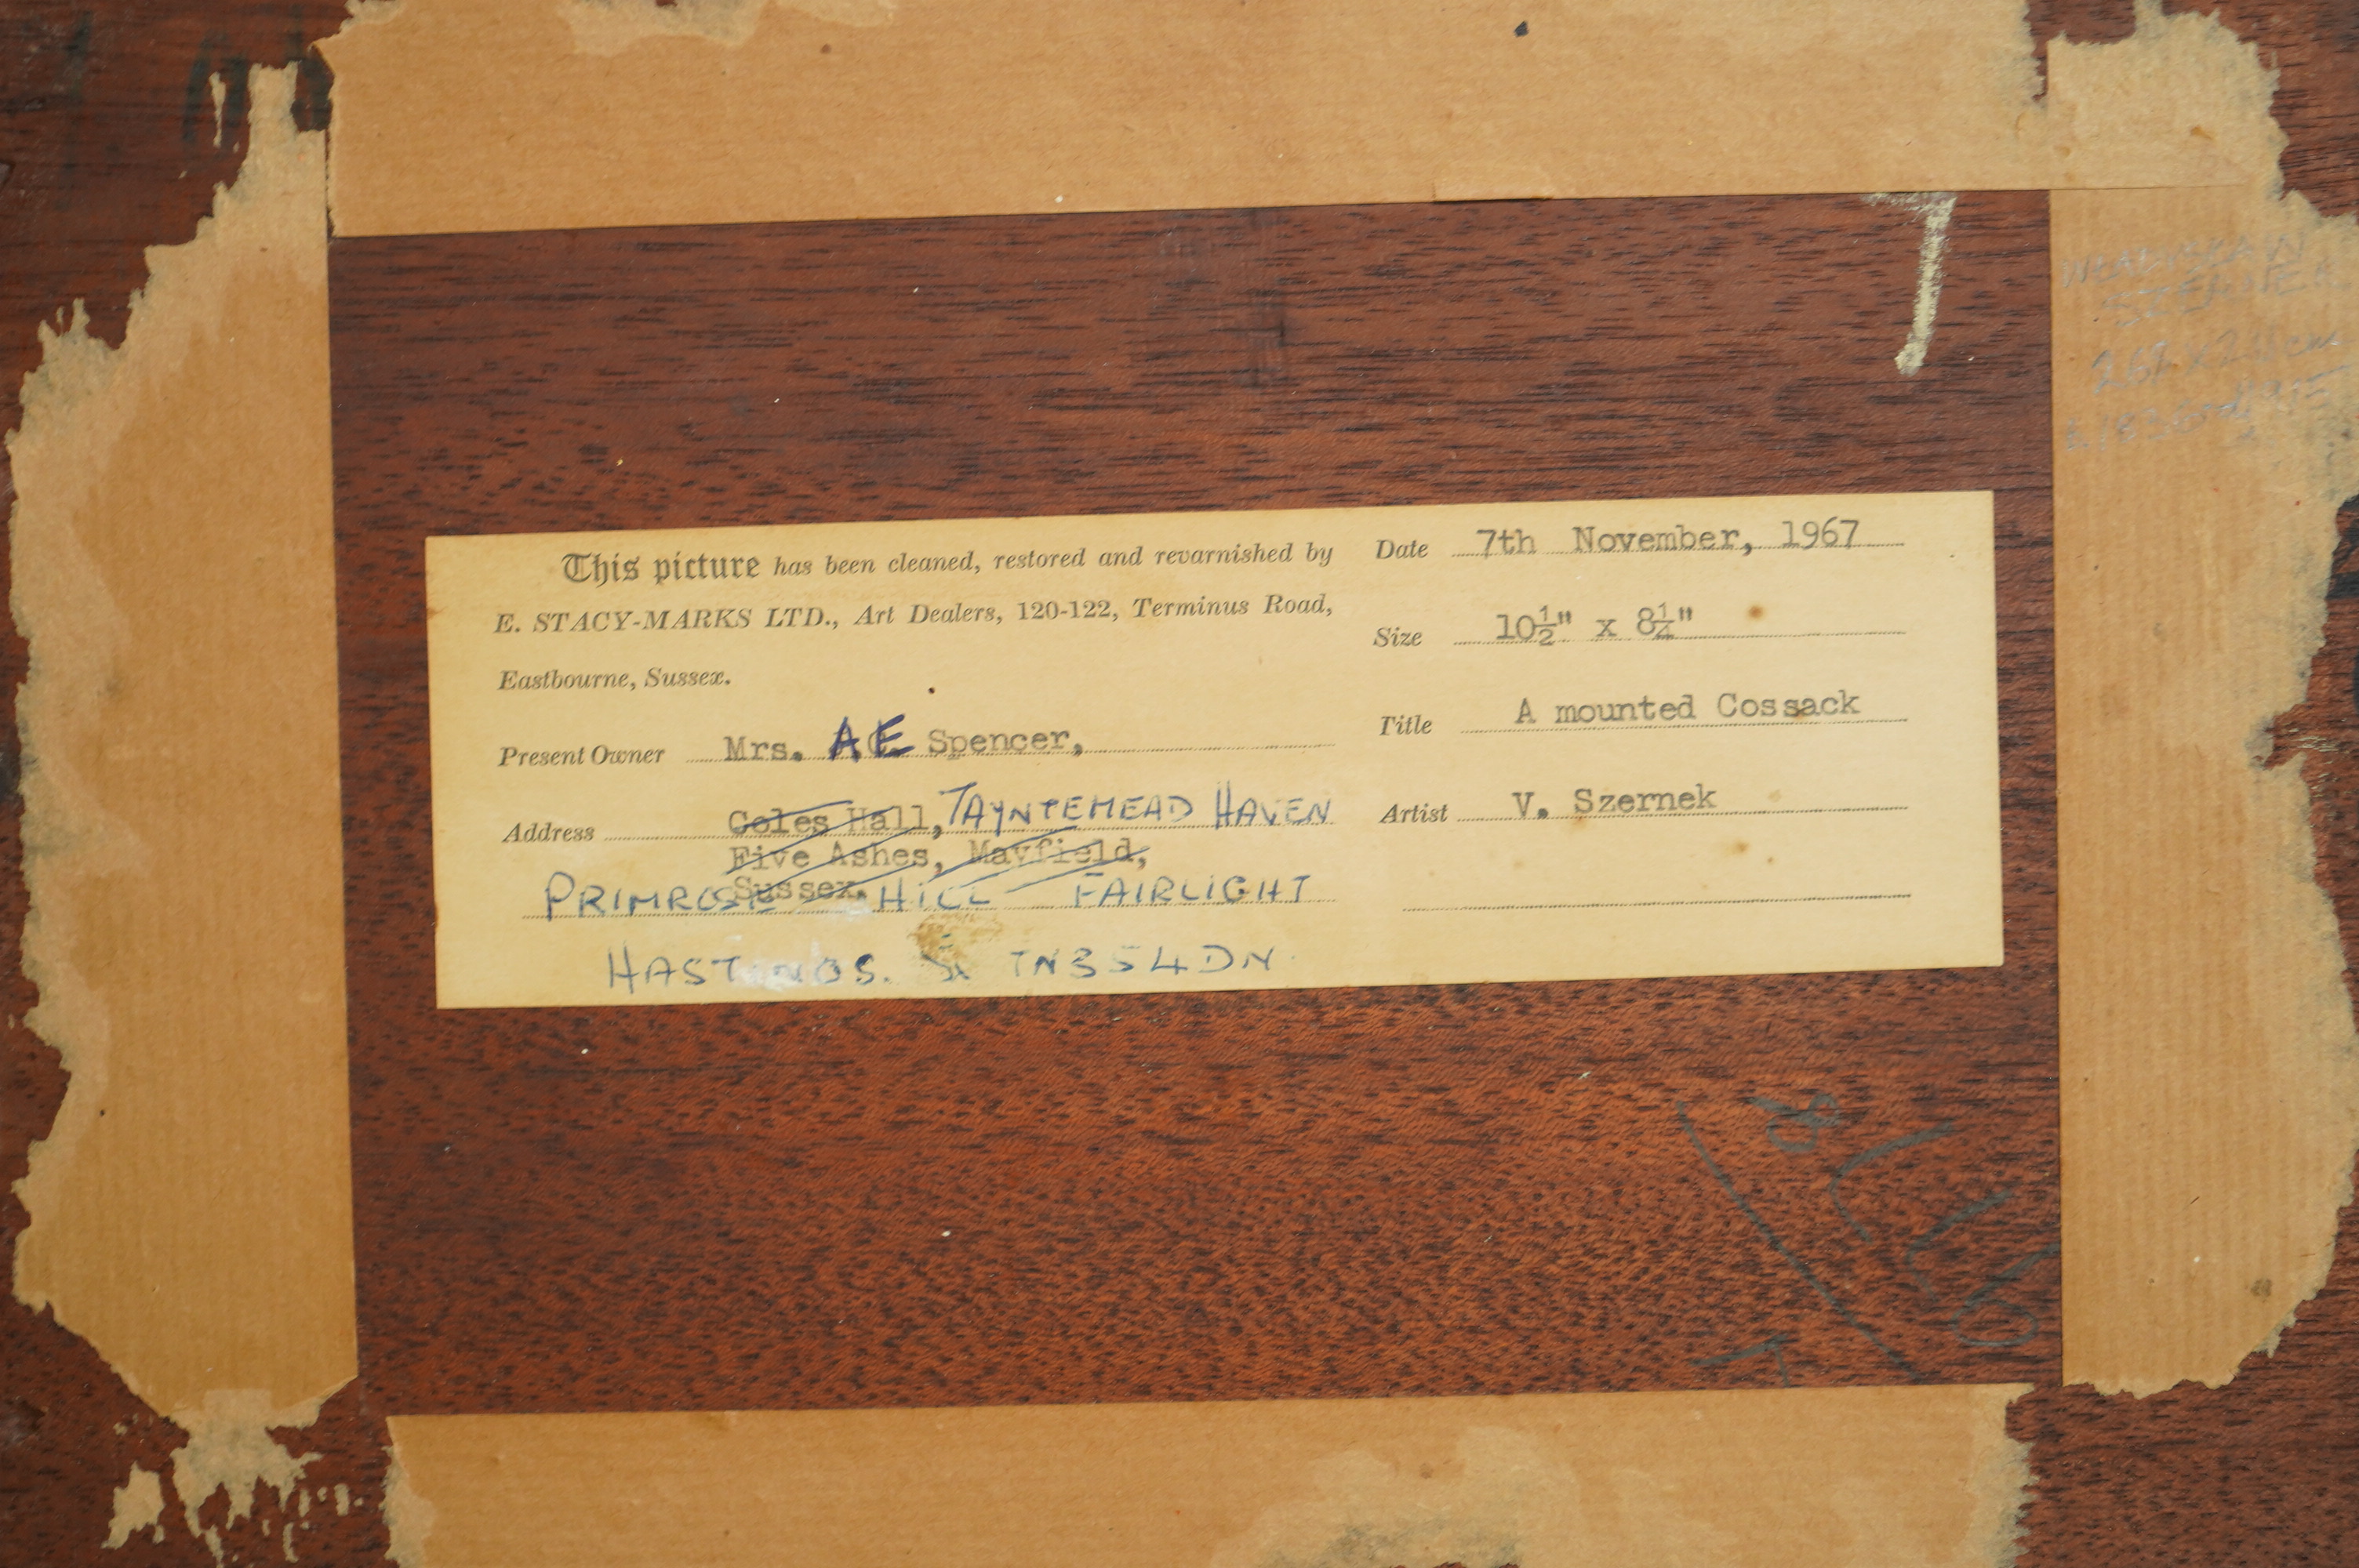 This picture has been cleaned, restored and revarnished by
E. STACY-MARKS LTD., Art Dealers, 120-122, Terminus Road,
Eastbourne, Sussex.
Present Owner Mrs. AE Spencer,
Address Coles Hall, TAYNTEMEAD HAVEN
Five Ashes, Mayfield,
Sussex.
PRIMROSE HILL FAIRLIGHT
HASTINGS. TN354DN.
Date 7th November, 1967
Size 10½" x 8¼"
Title A mounted Cossack
Artist V. Szernek